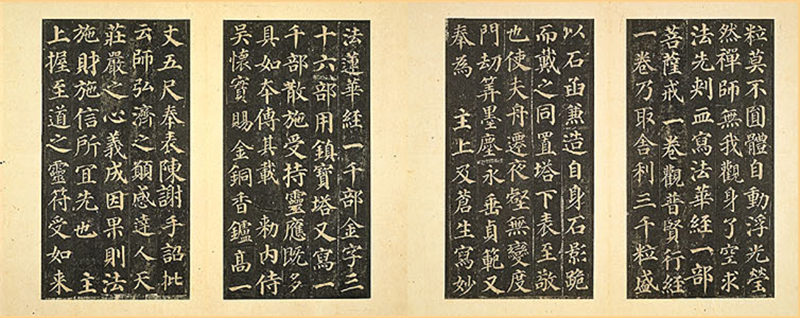 粒莫不圓體自動浮光瑩
然禪師無我觀身了空求
法先刾血寫法華經一部
菩薩戒一卷觀普賢行經
一卷乃取舍利三千粒盛
以石函兼造自身石影跪
而戴之同置塔下表至敬
也使夫舟遷夜壑無變度
門劫筭墨塵永垂貞範又
奉為 主上及蒼生寫妙
法蓮華經一千部金字三
十六部用鎮寶塔又寫一
千部散施受持靈應既多
具如本傳其載 勑內侍
吳懷實賜金銅香鑪高一
丈五尺奉表陳謝手詔批
云師弘濟之願感達人天
莊嚴之心義成因果則法
施財施信所冝先也 主
上握至道之靈符受如来